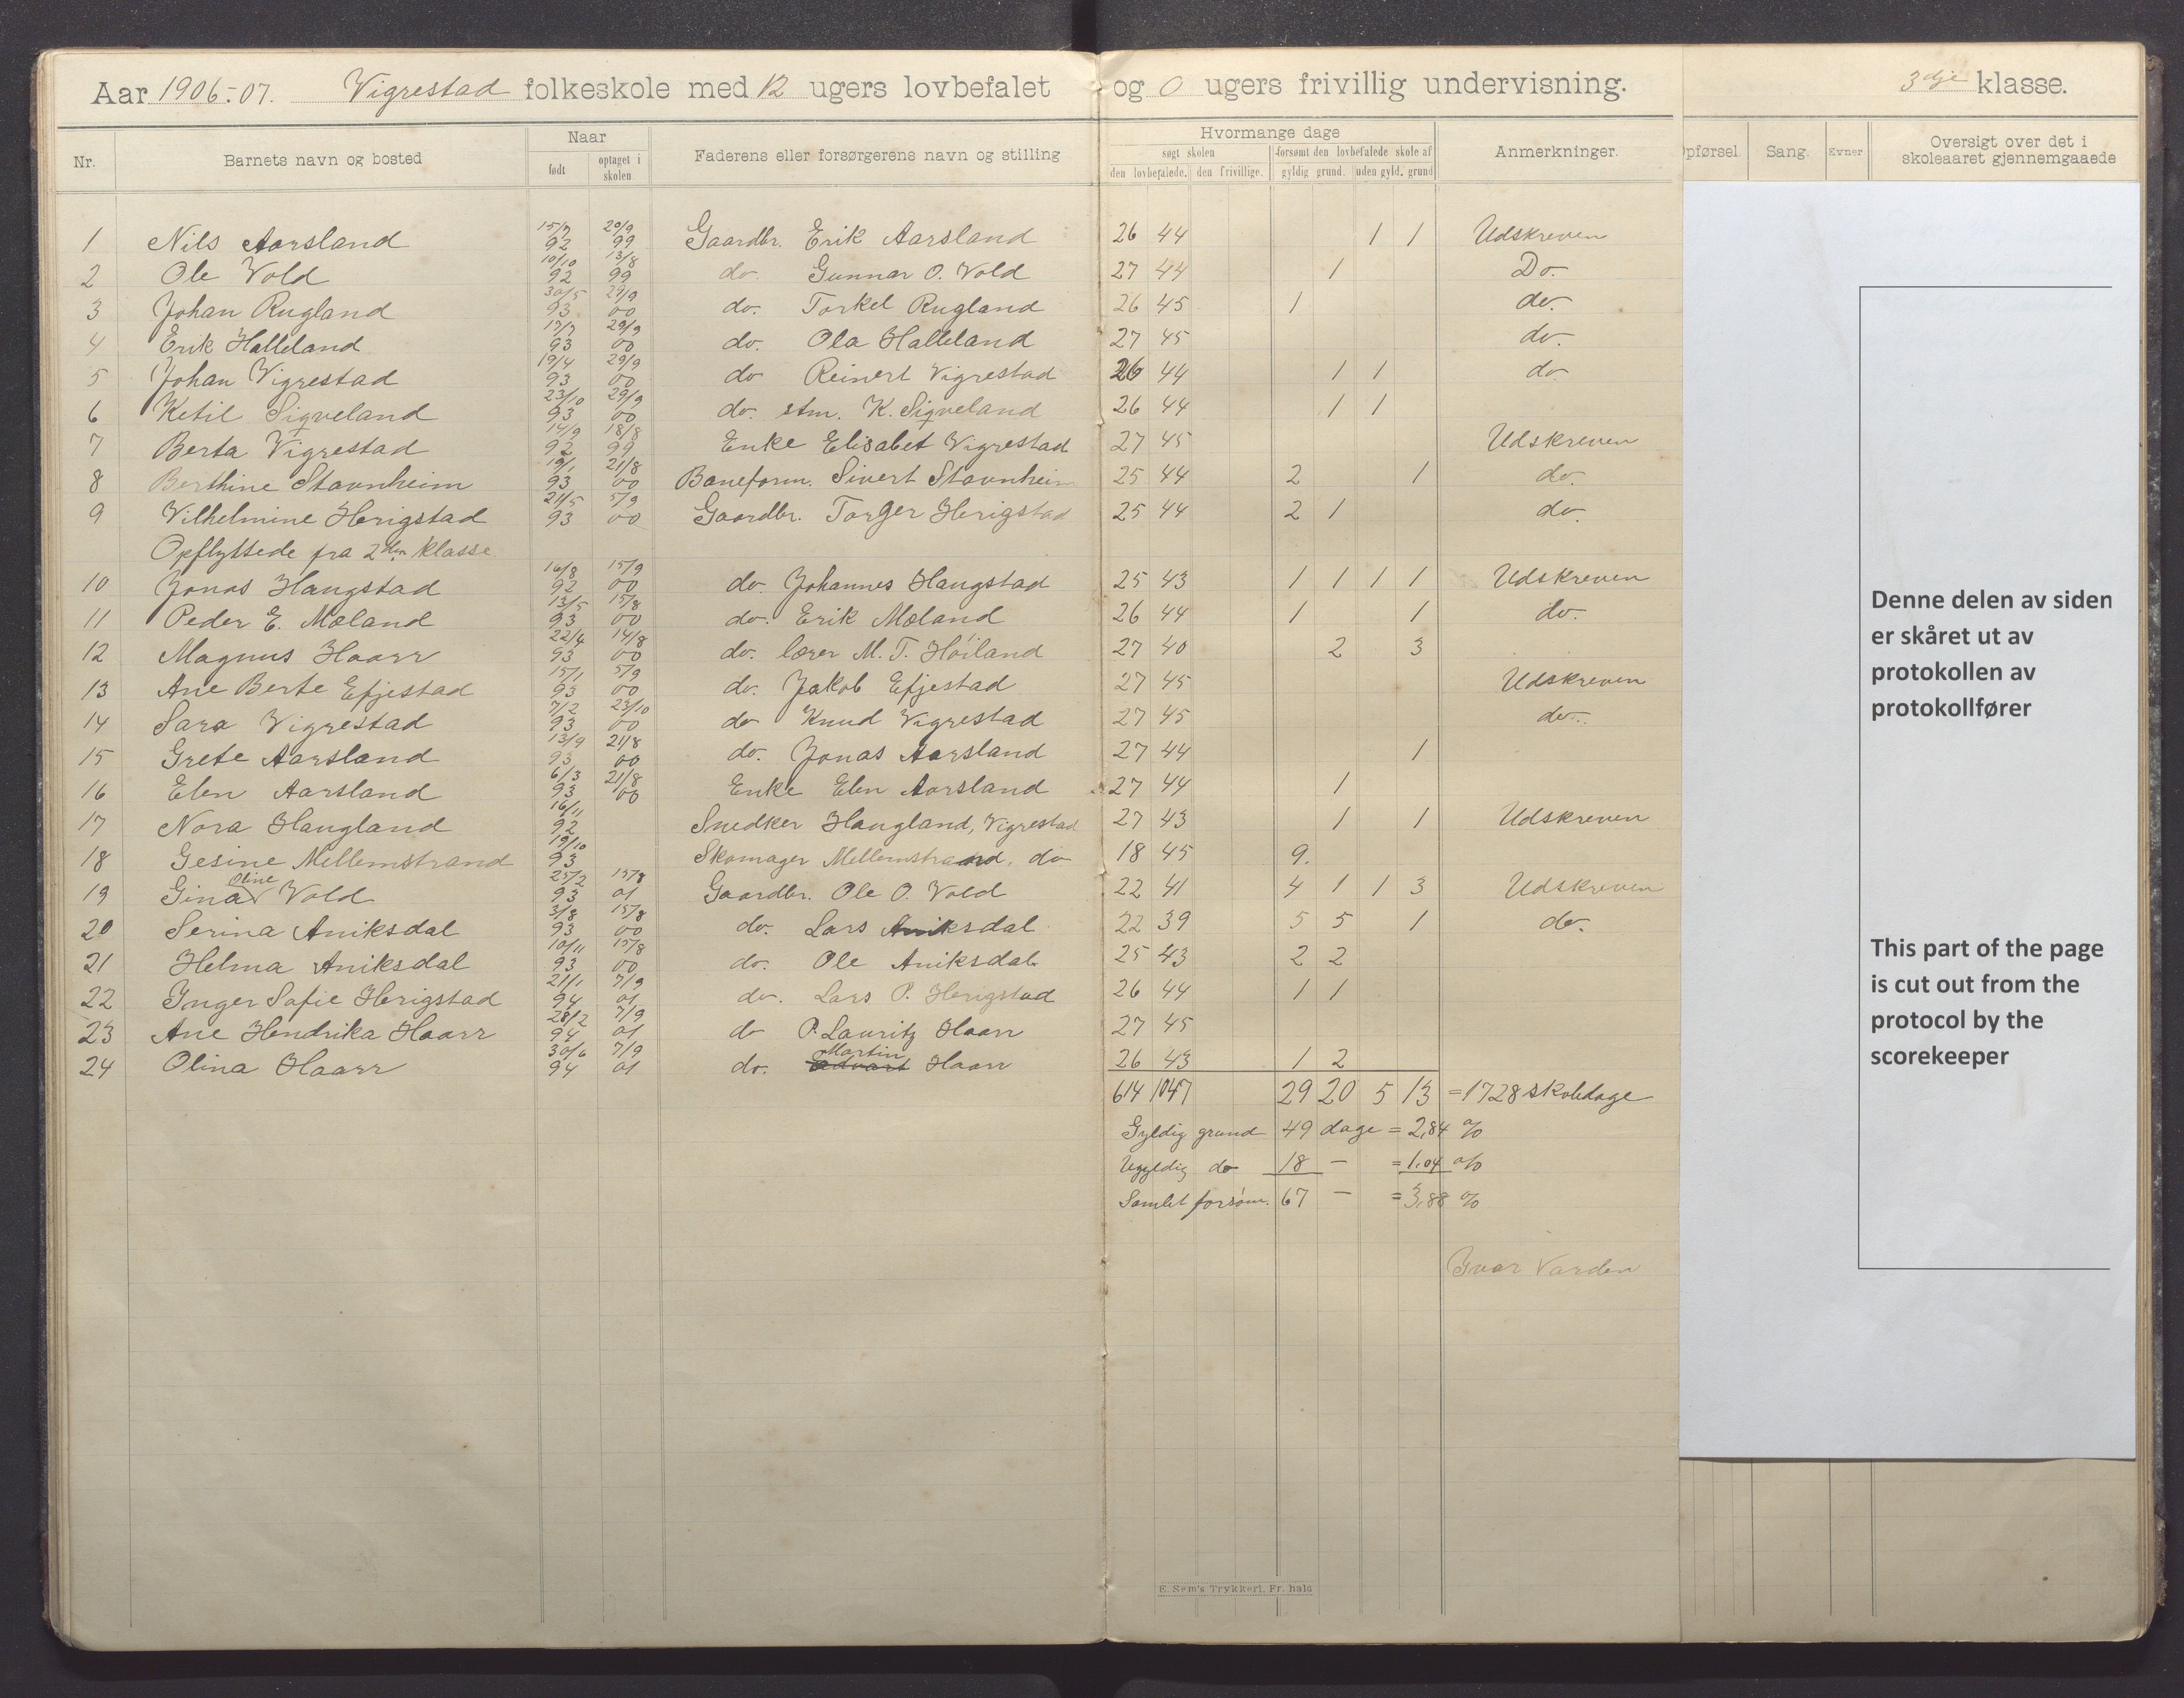 Aar 1906-07. Vigrestad folkeskole med 12 ugers lovbefalet og 0 ugers frivillig undervisning. 3dje klasse.
Nr. Barnets navn og bosted Naar født optaget i skolen Faderens eller forsørgerens navn og stilling Hvormange dage søgt skolen den lovbefalede. den frivillige. forsømt den lovbefalede skole af gyldig grund. uden gyld. grund Anmerkninger. Opførsel Sang. Evner Oversigt over det i skoleaaret gjennemgaaede
1 Nils Aarsland 15/7 92 29/9 99 Gaardbr. Erik Aarsland 26 44 1 1 Udskreven
2 Ole Vold 10/10 92 13/8 99 do. Gunnar O. Vold 27 44 1 Do.
3 Johan Rugland 30/5 93 29/9 00 do. Torkel Rugland 26 45 1 do.
4 Erik Halleland 17/7 93 29/9 00 do. Ola Halleland 27 45 do.
5 Johan Vigrestad 19/4 93 29/9 00 do Reinert Vigrestad 26 44 1 1 do.
6 Ketil Sigveland 23/10 93 29/9 00 do. stm. K. Sigveland 26 44 1 1
7 Berta Vigrestad 14/9 92 18/8 99 Enke Elisabet Vigrestad 27 45 Udskreven
8 Berthine Stavnheim 19/1 93 21/8 00 Baneform. Sivert Stavnheim 25 44 2 1 do.
9 Vilhelmine Herigstad 21/5 93 5/9 00 Gaardbr. Torger Herigstad 25 44 2 1 do.
Opflyttede fra 2den klasse
10 Jonas Haugstad 16/8 92 15/9 00 do. Johannes Haugstad 25 43 1 1 1 1 Udskreven
11 Peder E. Mæland 13/5 93 15/8 00 do. Erik Mæland 26 44 1 1 do.
12 Magnus Haarr 22/4 93 14/8 00 do. lærer M. T. Höiland 27 40 2 3
13 Ane Berte Efjestad 15/1 93 5/9 00 do. Jakob Efjestad 27 45 Udskreven
14 Sara Vigrestad 7/2 93 23/10 00 do Knud Vigrestad 27 45 do.
15 Grete Aarsland 13/9 93 21/8 00 do. Jonas Aarsland 27 44 1
16 Elen Aarsland 6/3 93 21/8 00 Enke Elen Aarsland 27 44 1
17 Nora Haugland 16/11 92 Snedker Haugland, Vigrestad 27 43 1 1 Udskreven
18 Gesine Mellemstrand 19/10 93 Skomager Mellemstrand, do 18 45 9.
19 Gina Oline Vold 25/2 93 15/8 01 Gaardbr. Ole O. Vold 22 41 4 1 1 3 Udskreven
20 Serina Aniksdal 3/8 93 15/8 00 do. Lars Aniksdal 22 39 5 5 1 do.
21 Helma Aniksdal 10/11 93 15/8 00 do. Ole Aniksdal 25 43 2 2
22 Inger Sofie Herigstad 21/1 94 7/9 01 do. Lars P. Herigstad 26 44 1 1
23 Ane Hendrika Haarr 28/2 94 7/9 01 do P. Lauritz Haarr 27 45
24 Olina Haarr 30/6 94 7/9 01 do. Edvart Martin Haarr 26 43 1 2
614 1047 29 20 5 13 = 1728 skoledage
Gyldig grund 49 dage = 2,84 %
Ugyldig do 18 — = 1.04 %
Samlet forsöm. 67 — = 3,88 %
Ivar Varden
E. Sem's Trykkeri, Fr. hald
Denne delen av siden
er skåret ut av
protokollen av
protokollfører
This part of the page
is cut out from the
protocol by the
scorekeeper